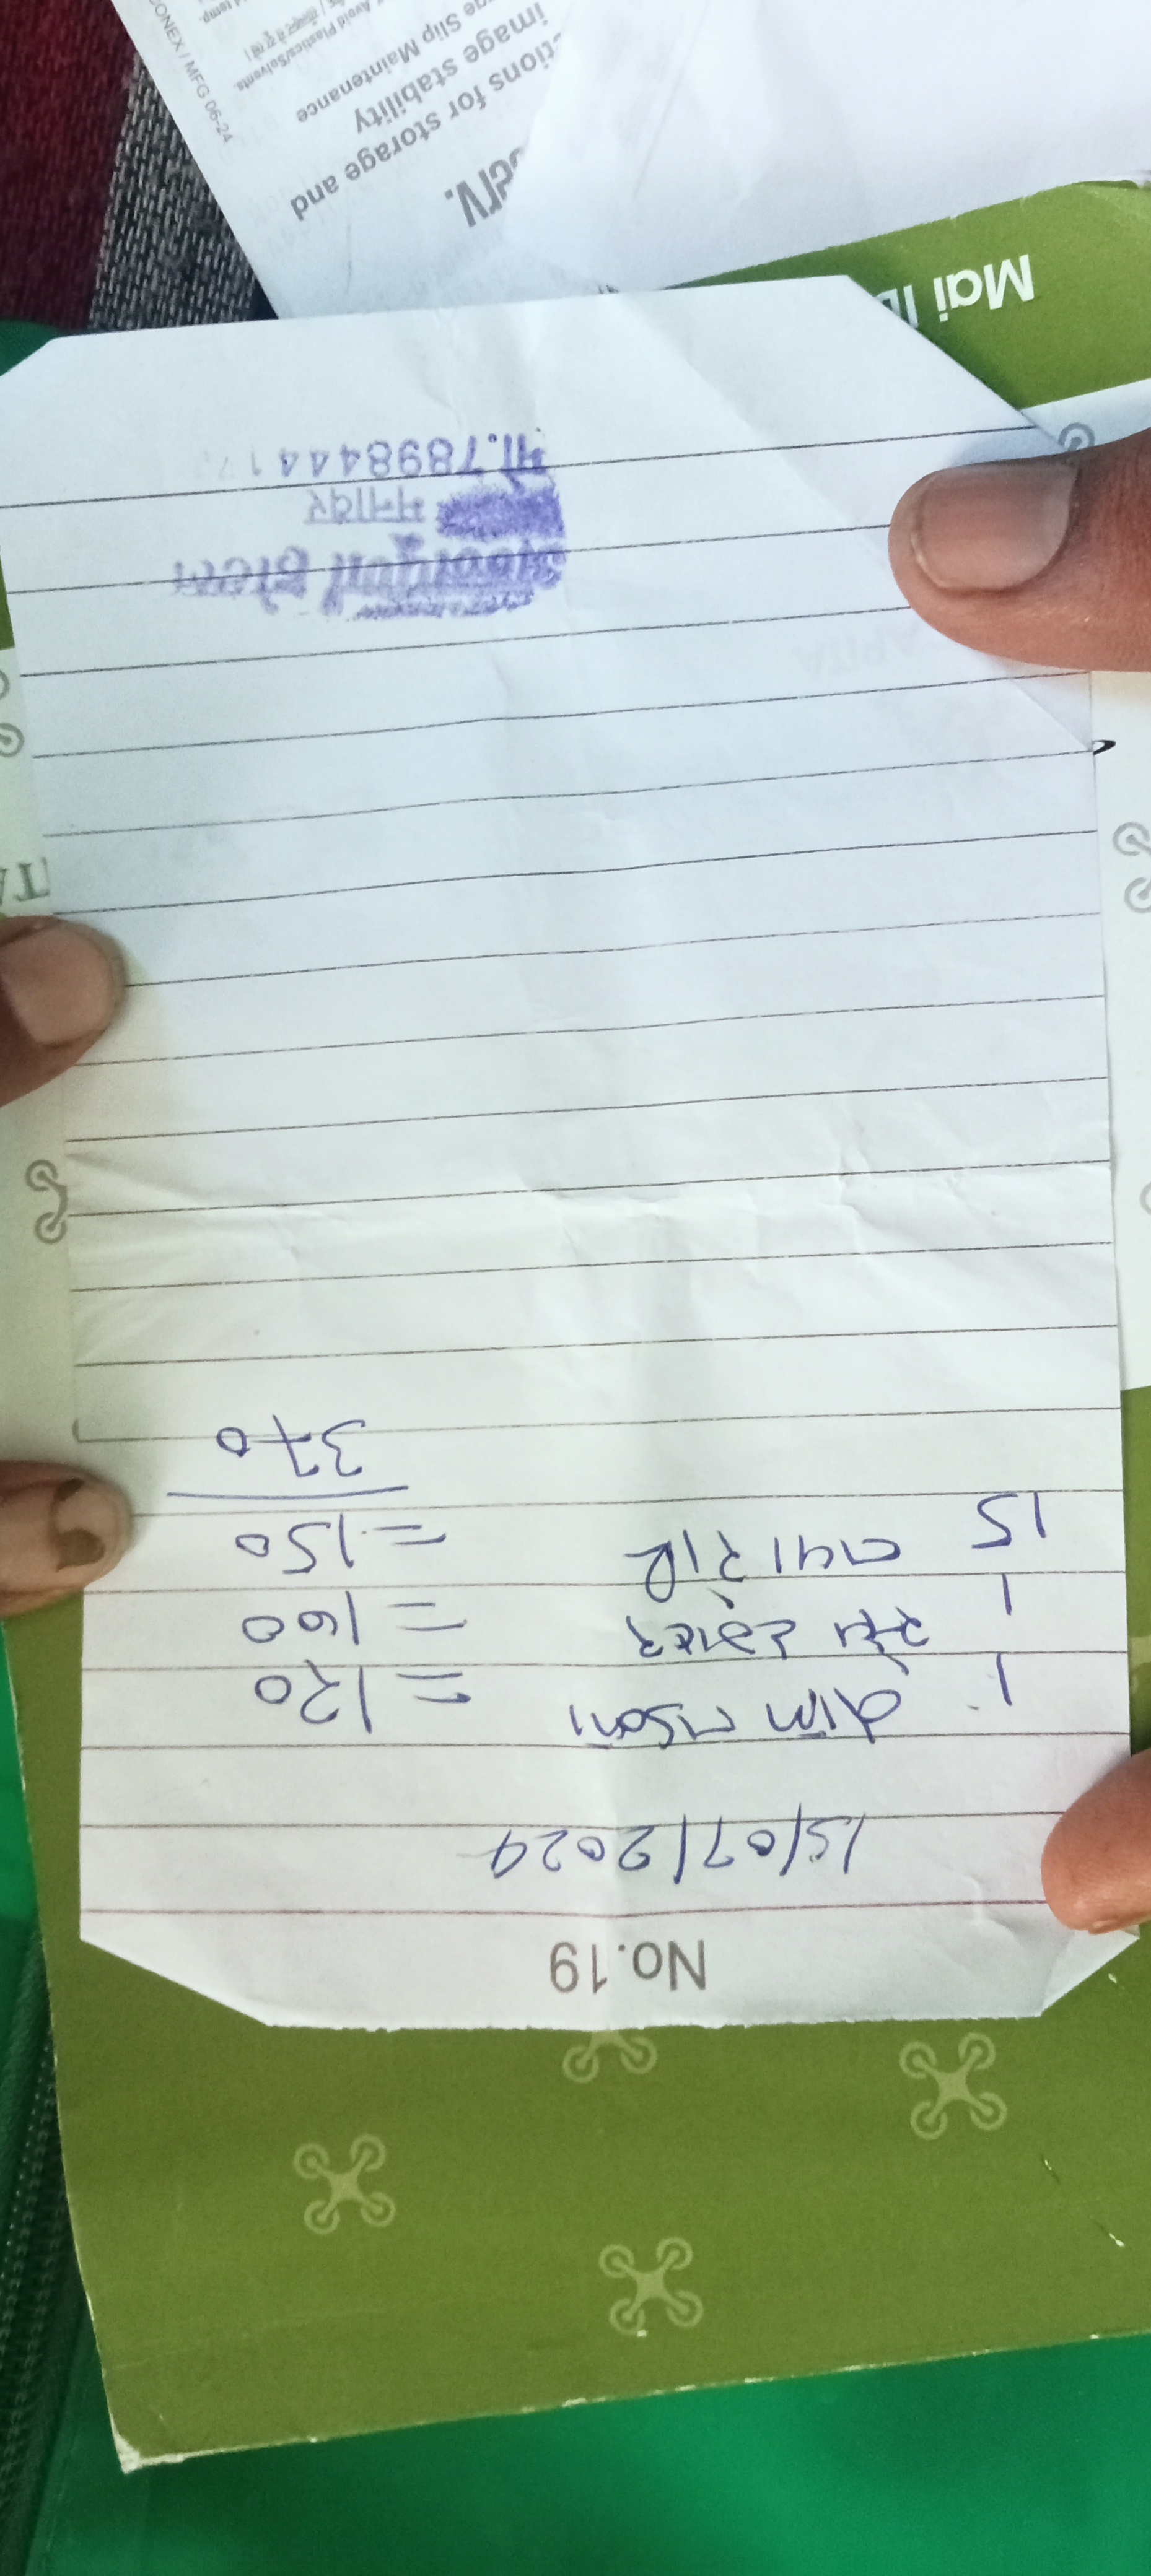 No.19
15/07/2024
1 दाल तडका = 120
1 सेव टमाटर = 100
15 तवा रोटी = 150
370
अन्नपूर्णा होटल
मनावर
मो.789844417
Mai
erv.
tions for storage and
image stability
ge Slip Maintenance
Avoid Plastics/Solvents.
CONEX / MFG 06-24